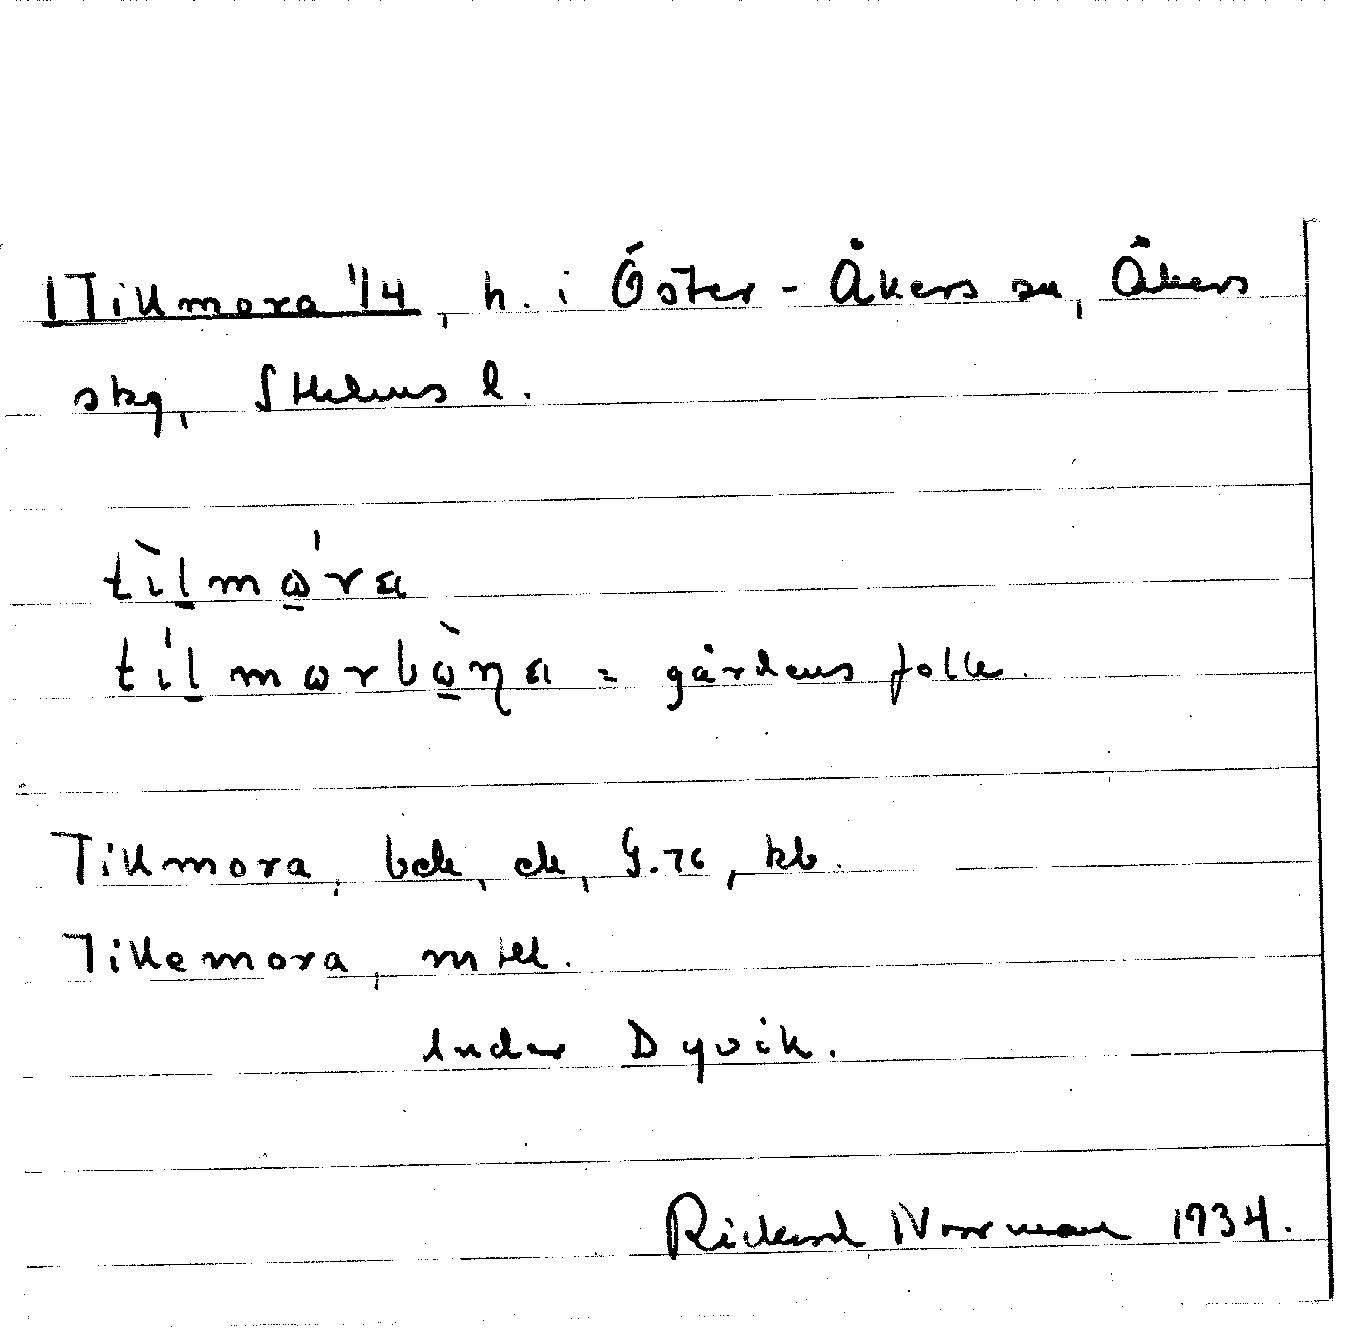 1 Tillmora 1/4, h. i Öster-Åkers sn, Åkers
skg, Sthlms l.
tìlmώ̲ra
tílmωrbὼ̲ŋa = gårdens folk.
Tillmora, bek, ek, J.76, kb.
Tillemora, mtl.
under Dyvik.
Rickard Norrman 1934.